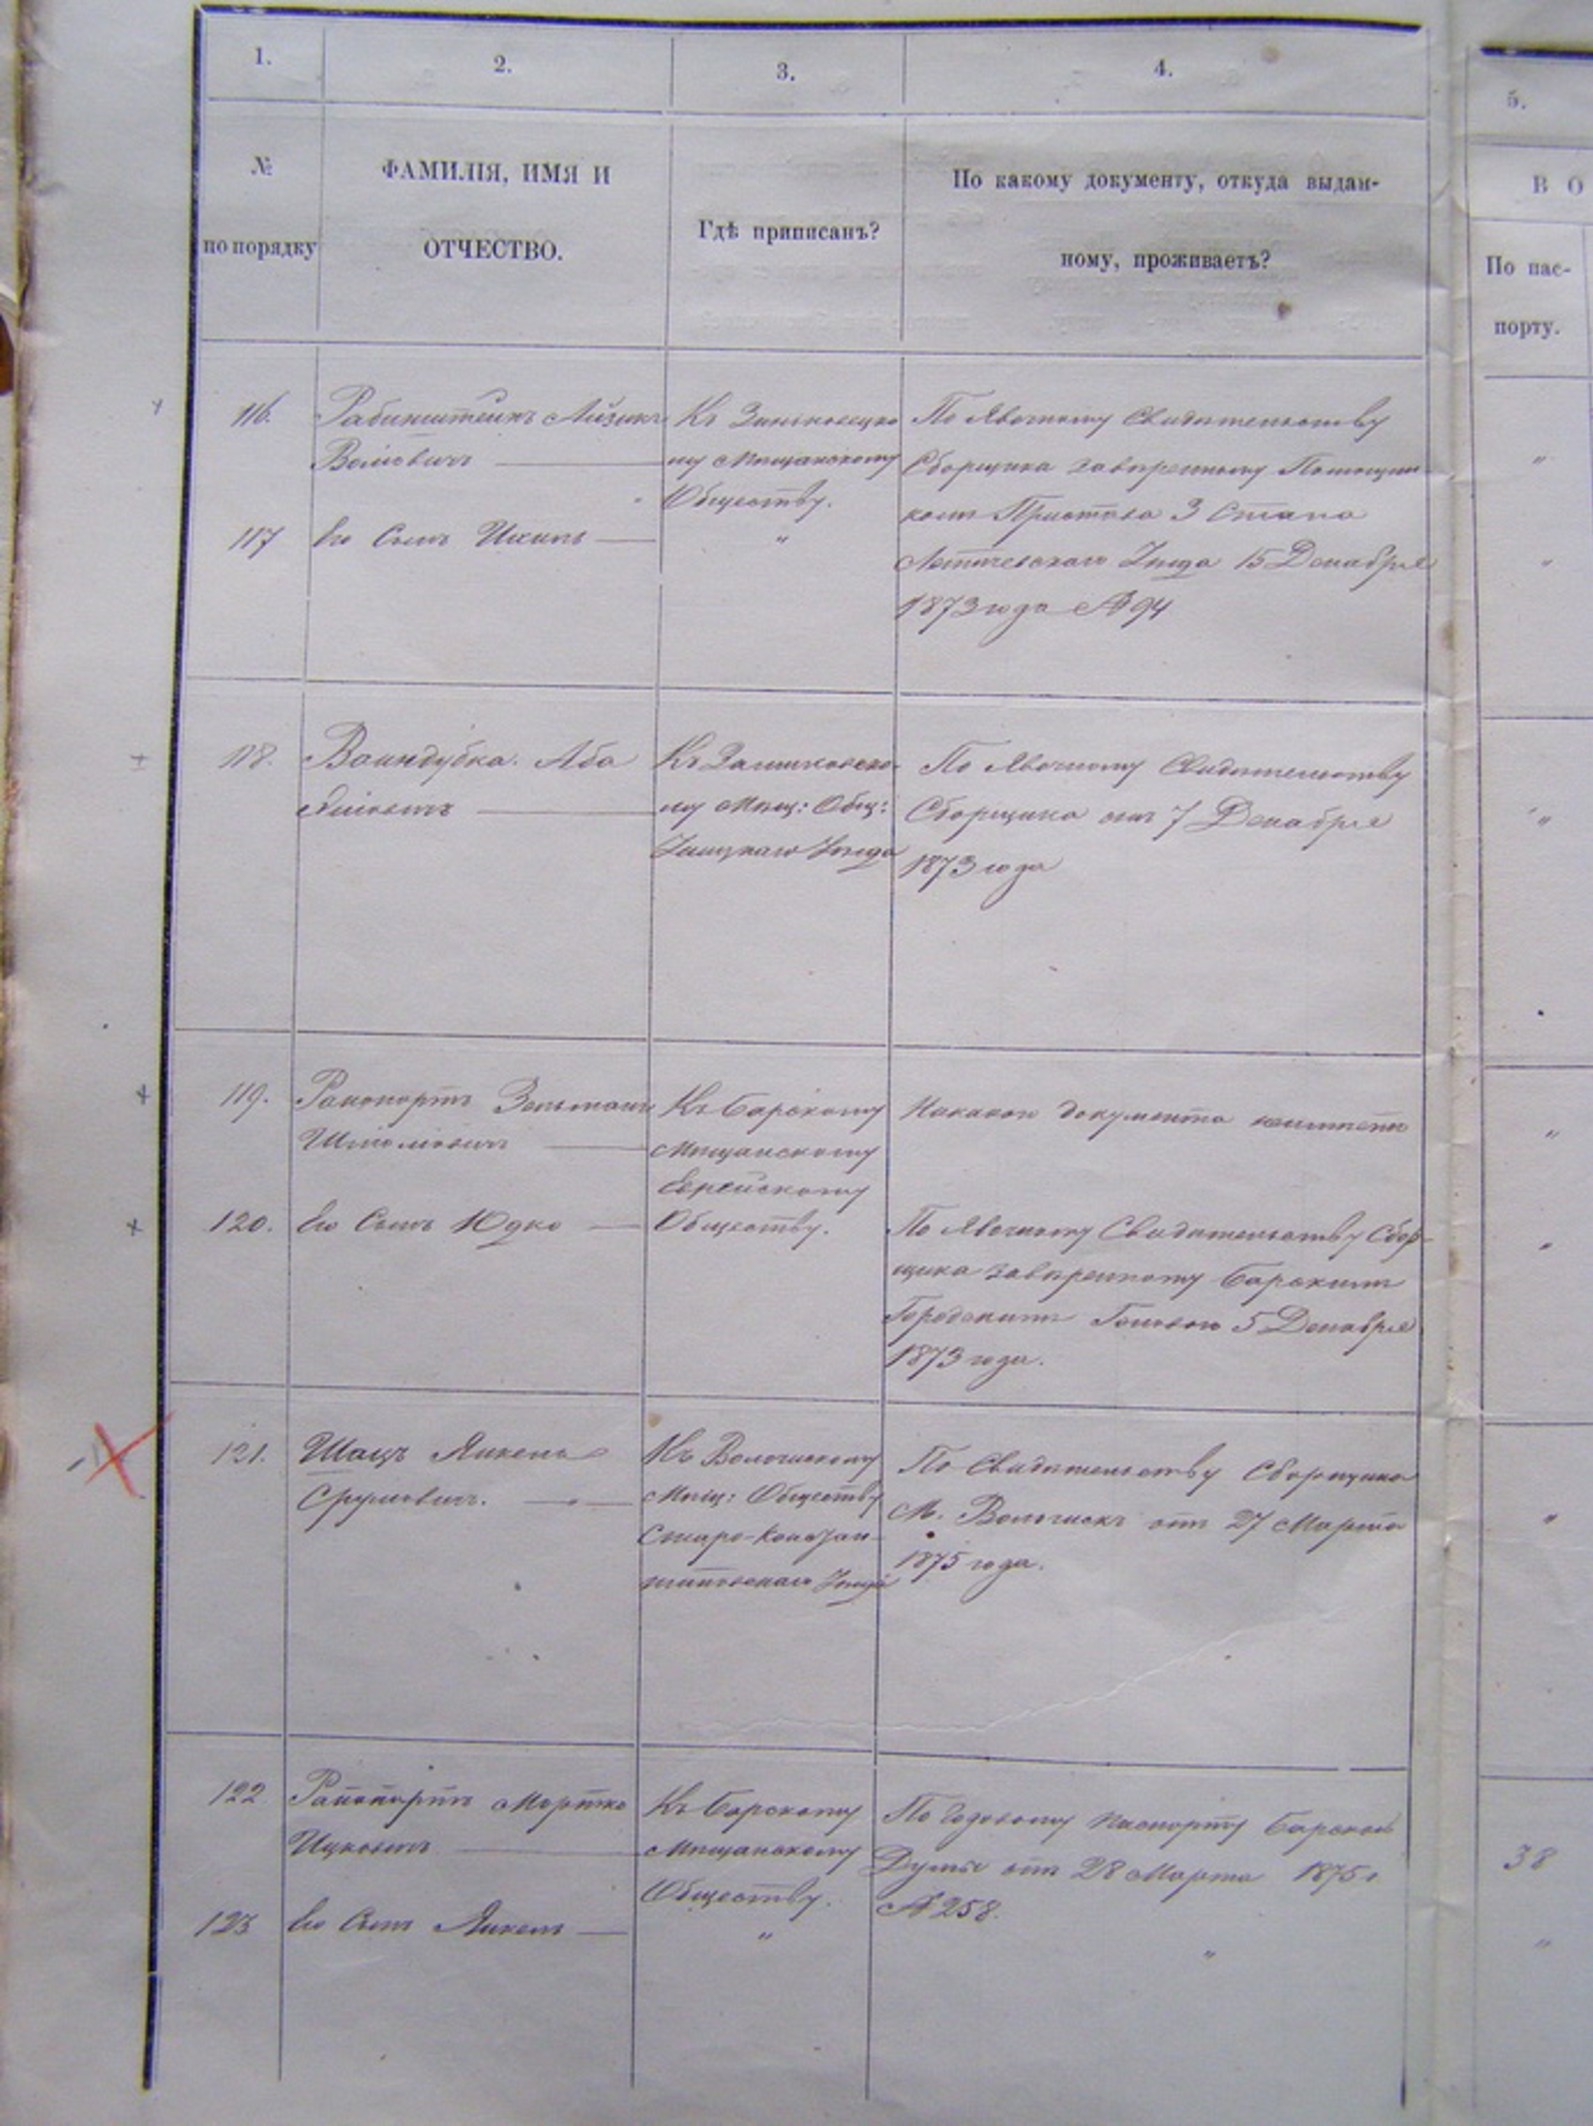 1.
2.
3.
4.
5.
№
по порядку
ФАМИЛІЯ, ИМЯ И
ОТЧЕСТВО.
Гдѣ приписанъ?
По какому документу, откуда выдан-
ному, проживаетъ?
В О
По пас-
порту.
116.
Рабинштейнъ Айзикъ
Волковичъ
Къ Зиньковецко
му Мѣщанскому
Обществу.
По Явочному Свидѣтельству
Сборщика завѣренному Помощни
комъ Пристава 3 Стана
Летичевскаго Уѣзда 15 Декабря
1873 года № 94
"
117
Его Сынъ Ицикъ
"
"
118.
Ваиндубка. Аба
Къ
му Мѣщ: Общ:
Ушицкаго Уѣзда
По Явочному Свидѣтельству
Сборщика отъ 7 Декабря
1873 года
"
119.
Рапопортъ Зельманъ
Шмолювичъ
Къ Барскому
Мѣщанскому
Еврейскому
Обществу.
Никакого документа неимѣетъ
"
120.
Его Сынъ Юдко
По Явочному Свидѣтельству Сбор-
щика завѣренному Барскимъ
Городскимъ Головою 5 Декабря
1873 года.
"
121.
Шацъ Янкель
Срулевичъ.
Къ Волочискому
Мѣщ: Обществу
Старо-Констан-
тиновскаго Уѣзда
По Свидѣтельству Сборщика
М. Волочискъ отъ 27 Марта
1875 года.
"
122
Рапопортъ Мортко
Ицковичъ
Къ Барскому
Мѣщанскому
Обществу.
По Годовому Паспорту Барской
Думы отъ 28 Марта 1875 г.
№ 258.
38
123
Его Сынъ Янкель
"
"
"